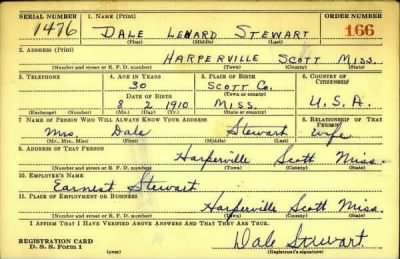 SERIAL NUMBER 1. NAME (Print) ORDER NUMBER
1476 DALE LENARD STEWART 166
(First) (Middle) (Last)
2. ADDRESS (Print)
HARPERVILLE SCOTT MISS.
(Number and street or R. F. D. number) (Town) (County) (State)
3. TELEPHONE 4. AGE IN YEARS 5. PLACE OF BIRTH 6. COUNTRY OF CITIZENSHIP
30 SCOTT CO.
DATE OF BIRTH (Town or county)
8 2 1910 MISS. U.S.A.
(Exchange) (Number) (Mo.) (Day) (Yr.) (State or country)
7. NAME OF PERSON WHO WILL ALWAYS KNOW YOUR ADDRESS 8. RELATIONSHIP OF THAT PERSON
Mrs. Dale Stewart wife
(Mr., Mrs., Miss) (First) (Middle) (Last)
9. ADDRESS OF THAT PERSON
Harperville Scott Miss.
(Number and street or R. F. D. number) (Town) (County) (State)
10. EMPLOYER'S NAME
Earnest Stewart
11. PLACE OF EMPLOYMENT OR BUSINESS
Harperville Scott Miss.
(Number and street or R. F. D. number) (Town) (County) (State)
I AFFIRM THAT I HAVE VERIFIED ABOVE ANSWERS AND THAT THEY ARE TRUE.
REGISTRATION CARD
D. S. S. Form 1 (over) Dale Stewart
(Registrant's signature)